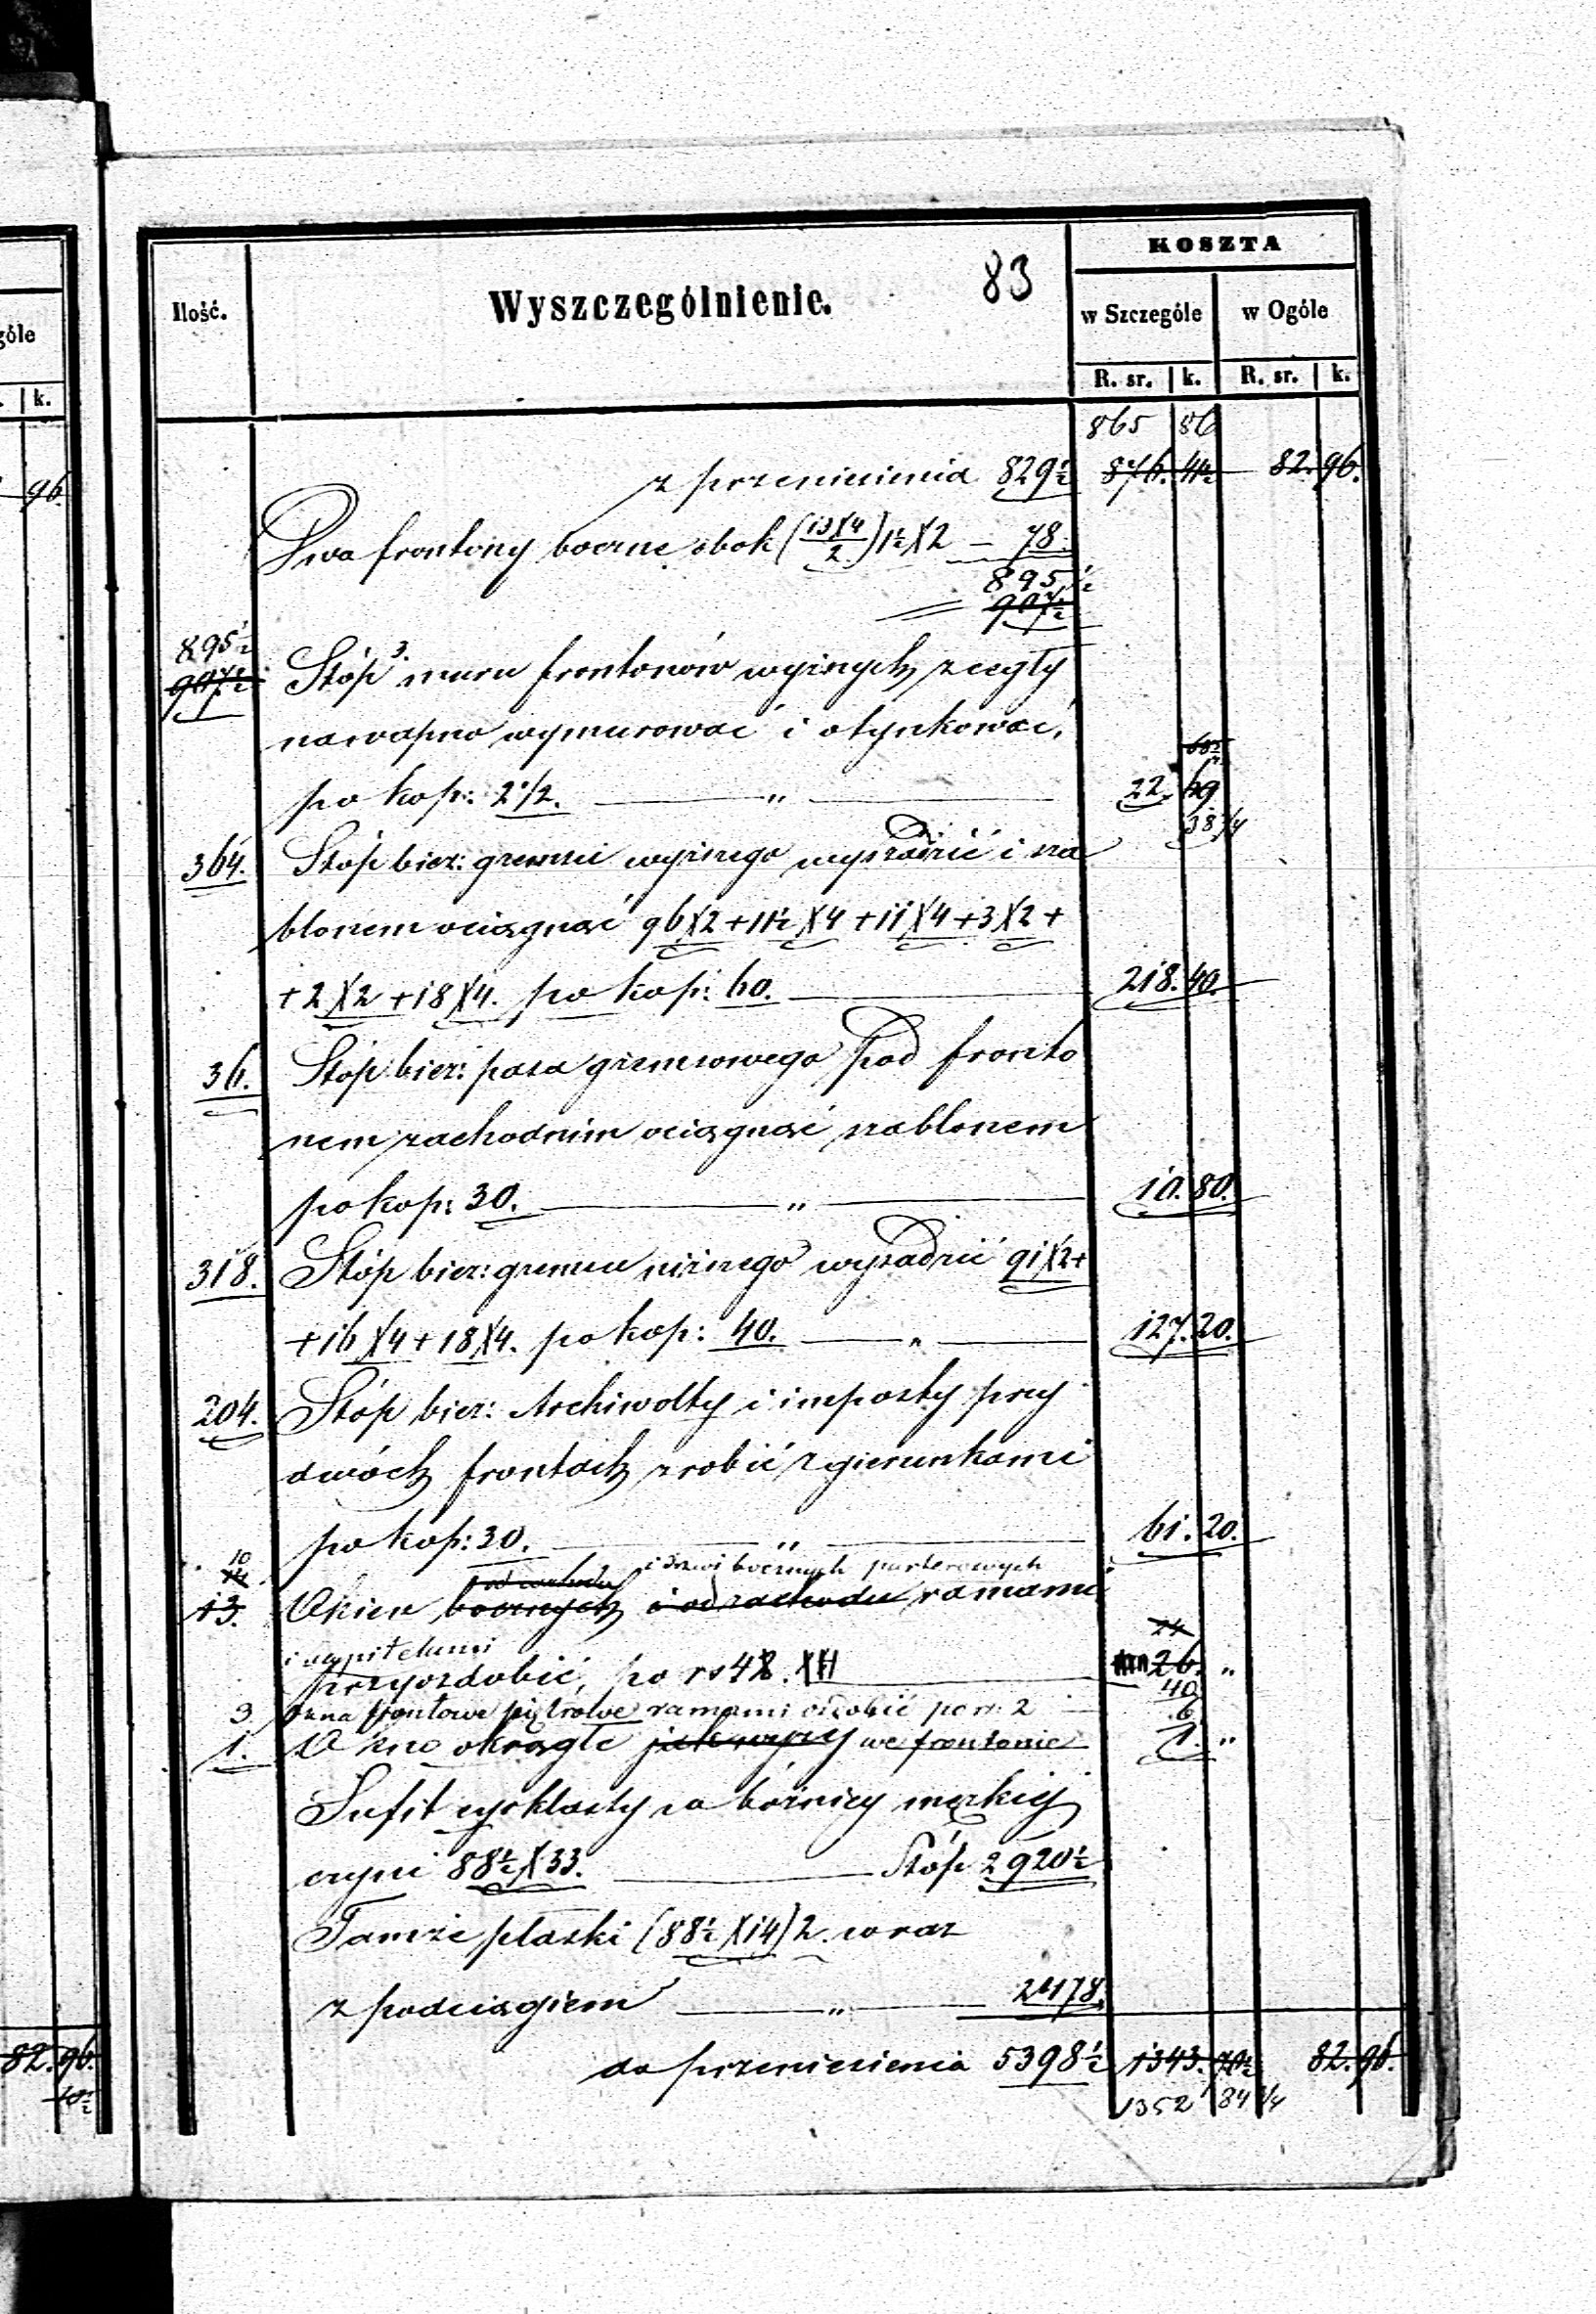 góle
k.
96
82. 96.
10½
83
KOSZTA
Ilość.
Wyszczególnienie.
w Szczególe
w Ogóle
R. sr. k. R. sr. k.
865 86
z przeniesienia 829½ 876. 44½ 82. 96.
Dwa frontony boczne obok (13X4/2) 1½ X2 — 78.
895½
= 907½
895½
907½ Stóp 3. muru frontonów wyżnych z cegły
na wapno wymurować i otynkować,
68¾
po kop: 2½. — „ — 22. 69
38¾
364. Stóp bież: gzemsu wyżnego wysadzić i sza
blonem ociągnąć 96X2+11½X4+11X4+3X2+
+2X2+18X4. po kop: 60. — 218. 40.
36. Stóp bież: pasa gzemsowego pod fronto
nem zachodnim ociągnąć szablonem
po kop: 30. — „ — 10. 80.
318. Stóp bież: gzemsu niżnego wysadzić 91X2+
+16X4+18X4. po kop: 40. — „ — 127. 20.
204. Stóp bież: Archiwolty i imposty przy
dwóch frontach zrobić z gierunkami
po kop: 30. — „ — 61. 20.
10
14
i drzwi bocznych parterowych
13. Okien bocznych i od zachodu ramami
24
i kapitelami
przyozdobić, po rs 4 26. „
40
3 okna frontowe piętrowe ramami ozdobić po rs. 2 — 6
1. Okno okrągłe jak wyżej we frontonie 1. „
Sufit cyrklasty w bóżnicy męzkiej
czyni 88½X33. — Stóp 2920½
Tamże płaski (88½X14)2. wraz
z podciągiem — „ — 2478.
do przeniesienia 5398½ 1343. 70½ 82. 96.
1352 84¼